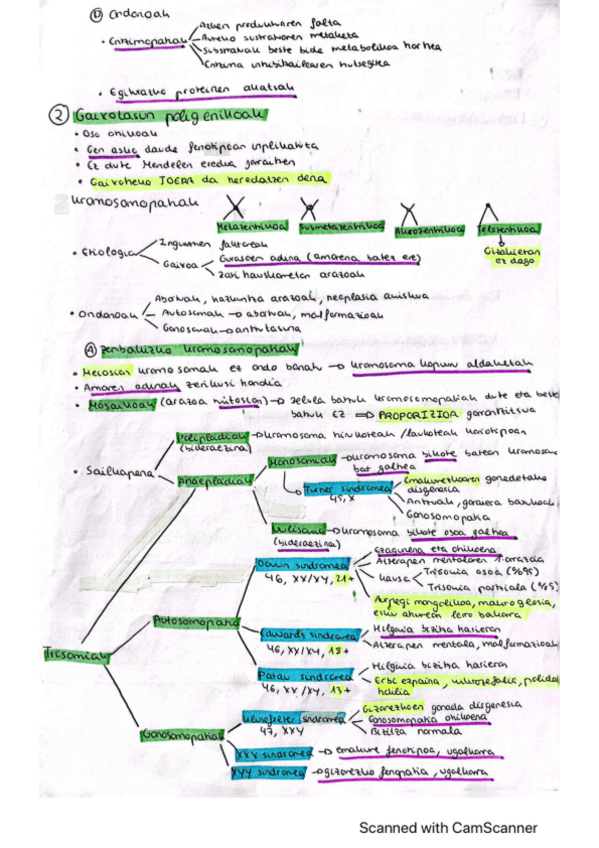 ① Ondorioak
• Entzimopatiak
Azken produktuaren falta
Aurreko sustratuaren metaketa
Substratuak beste bide metabolikoa hartzea
Entzima inhibitzailearen hutsegitea
• Egiturazko proteinen akatsak
② Gaixotasun poligenikoak
• Oso ohikoak
• Gen asko daude fenotipoan inplikatuta
• Ez dute Mendelen eredua jarraitzen
• Gaixotzeko JOERA da heredatzen dena
Kromosomopatiak
Metazentrikoa
Submetazentrikoa
Akrozentrikoa
Telozentrikoa
Gizakietan ez dago
• Etiologia
Ingurumen faktoreak
Gurasoen adina (amarena batez ere)
Zati hauskorretan arazoak
• Ondorioak
Abortuak, hazkuntza arazoak, neoplasia
Autosomak → abortuak, malformazioak
Gonosomak → antzutasuna
Ⓐ Zenbakizko kromosomopatiak
• Meiosian kromosomak ez ondo banatu → kromosoma kopuru aldaketak
• Amaren adinak zerikusi handia
• Mosaikoak (arazoa mitosian) → zelula batzuk kromosomopatiak dute eta beste
batzuk EZ ⇒ PROPORTZIOA garrantzitsua
• Sailkapena
Poliploidiak → kromosoma hirukoteak / laukoteak kariotipoan
(bideraezina)
Aneuploidiak
Monosomiak → kromosoma bikote batean kromosoma
bat galtzea
Turner sindromea
45, X
Emakumezkoaren gonadetako
disgenesia
Antzuak, garaiera baxukoak
Gonosomopatia
Nulisomia → kromosoma bikote osoa galtzea
(bideraezina)
Trisomiak
Autosomopatia
Down sindromea
46, XX/XY, 21+
Ezagunena eta ohikoena
Atzerapen mentalaren 1. arrazoia
Kausa
Trisomia osoa (%95)
Trisomia partziala (%5)
Aurpegi mongolikoa, makroglosia,
esku ahurrean lerro bakarra
Edwards sindromea
46, XX/XY, 18+
Hilgarria bizitza hasieran
Atzerapen mentala, malformazioak
Patau sindromea
46, XX/XY, 13+
Hilgarria bizitza hasieran
Erbi ezpaina, mikrozefalia, polidak
tilia
Gonosomopatia
Klinefelter sindromea
47, XXY
Gizonezkoen gonada disgenesia
Gonosomopatia ohikoena
Bizitza normala
XXX sindromea → emakume fenotipoa, ugalkorra
XYY sindromea → gizonezko fenotipoa, ugalkorra
Scanned with CamScanner